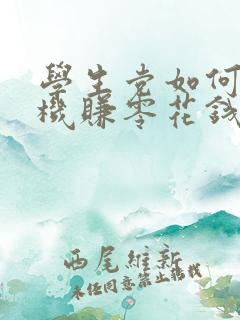 學生党如何
機賺零花錢
西尾維新
未经同意禁止转载